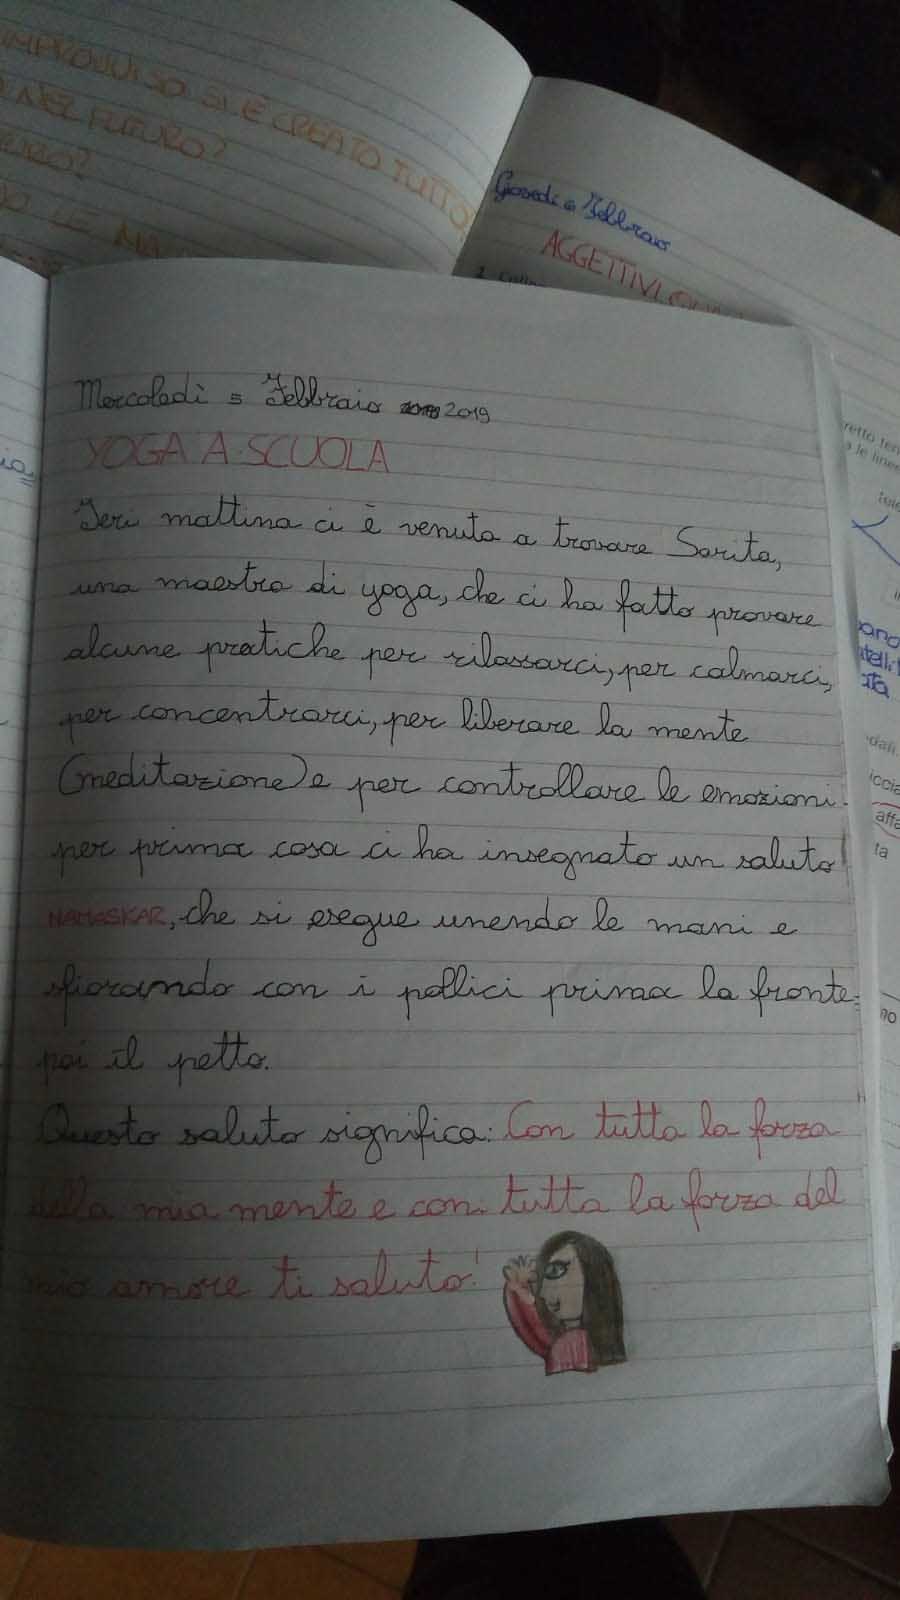 IMPROVVISO SI È CREATO TUTTO,
NEL FUTURO?
Giovedì 6 Febbraio
AGGETTIVI
Mercoledì 5 Febbraio 2019
YOGA A SCUOLA
Ieri mattina ci è venuta a trovare Sarita,
una maestra di yoga, che ci ha fatto provare
alcune pratiche per rilassarci, per calmarci,
per concentrarci, per liberare la mente
(meditazione) e per controllare le emozioni.
per prima cosa ci ha insegnato un saluto
NAMASKAR, che si esegue unendo le mani e
sfiorando con i pollici prima la fronte
poi il petto.
Questo saluto significa: Con tutta la forza
della mia mente e con tutta la forza del
mio amore ti saluto!